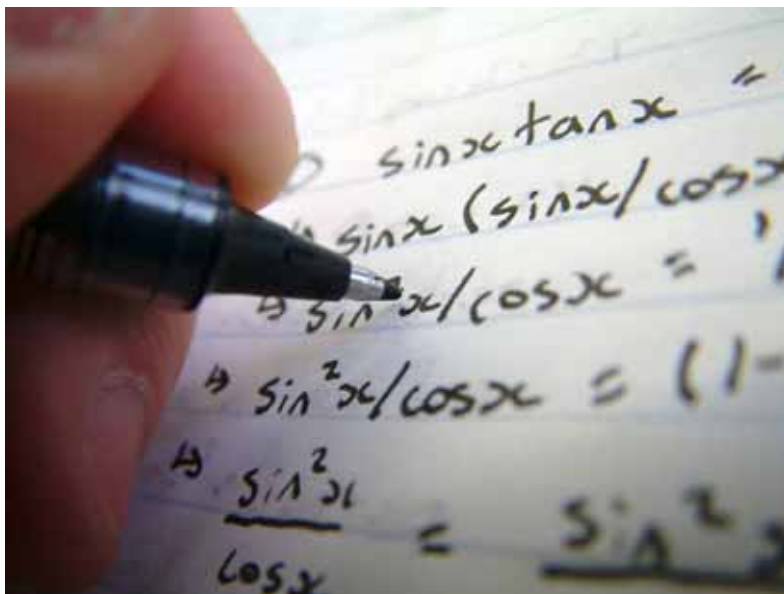 sinx tanx =
sinx (sinx/cosx
sin²x/cosx = '
↳ sin²x/cosx = (1-
↳ sin²x
cosx
= sin²x